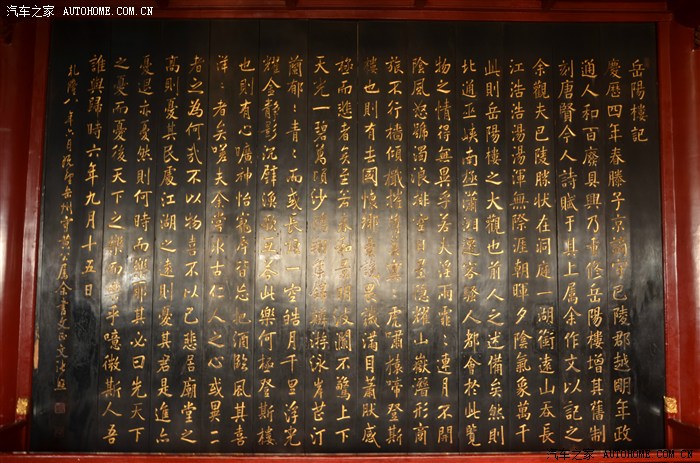 汽车之家 AUTOHOME.COM.CN
岳陽樓記
慶歷四年春滕子京謫守巴陵郡越明年政
通人和百廢具興乃重修岳陽樓增其舊制
刻唐賢今人詩賦于其上屬余作文以記之
余觀夫巴陵勝狀在洞庭一湖銜遠山吞長
江浩浩湯湯渾無際涯朝暉夕陰氣象萬千
此則岳陽樓之大觀也前人之述備矣然則
北通巫峽南極瀟湘遷客騷人都會於此覽
物之情得無異乎若夫淫雨霏〻連月不開
陰風怒號濁浪排空日星隱耀山嶽潛形商
旅不行檣傾楫摧薄暮冥〻虎嘯猿啼登斯
樓也則有去國懷鄉憂讒畏譏滿目蕭然感
極而悲者矣至若春和景明波瀾不驚上下
天光一碧萬頃沙鷗翔集錦鱗游泳岸芷汀
蘭郁〻青〻而或長煙一空皓月千里浮光
耀金靜影沉璧漁歌互答此樂何極登斯樓
也則有心曠神怡寵辱皆忘把酒臨風其喜
洋〻者矣嗟夫余嘗求古仁人之心或異二
者之為何哉不以物喜不以己悲居廟堂之
高則憂其民處江湖之遠則憂其君是進亦
憂退亦憂然則何時而樂耶其必曰先天下
之憂而憂後天下之樂而樂乎噫微斯人吾
誰與歸時六年九月十五日
乾隆八年 月 岳州守黃公屬余書 張照
汽车之家 AUTOHOME.COM.CN